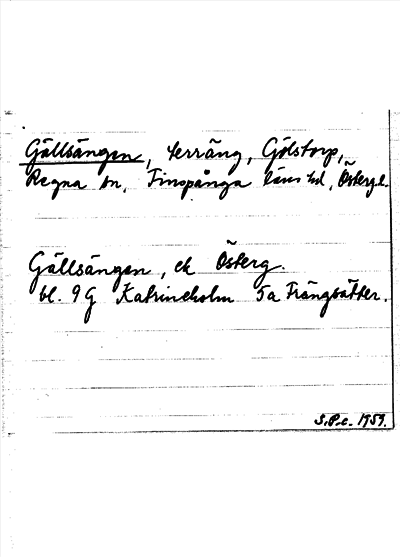 Gällsängen, terräng, Gölstorp,
Regna sn, Finspånga läns hd, Östergl.
Gällsängen, ek Österg.
bl. 9 G Katrineholm 5a Frängsätter.
S.P-c. 1959.